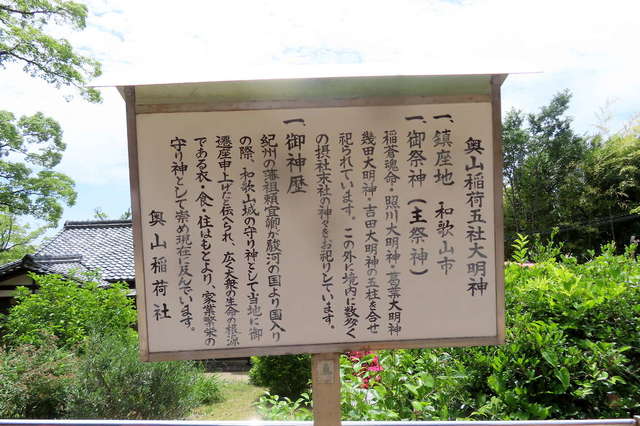 奥山稲荷五社大明神
一、鎮座地　和歌山市
一、御祭神（主祭神）
稲蒼魂命・照川大明神・葛葉大明神
幾田大明神・吉田大明神の五柱を合せ
祀られています。この外に境内に数多く
の摂社末社の神々をお祀りしています。
一、御神歴
紀州の藩祖頼宣卿が駿河の国より国入り
の際、和歌山城の守り神として当地に御
遷座申上げたと伝へられ、広く大衆の生命の根源
である衣・食・住はもとより、家業繁栄の
守り神として崇め現在に及んでいます。
奥山稲荷社